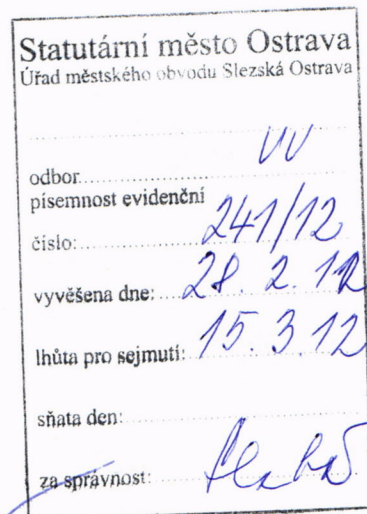 Statutární město Ostrava
Úřad městského obvodu Slezská Ostrava
odbor VV
písemnost evidenční
číslo: 241/12
vyvěšena dne: 28. 2. 12
lhůta pro sejmutí: 15. 3. 12
sňata den:
za správnost: